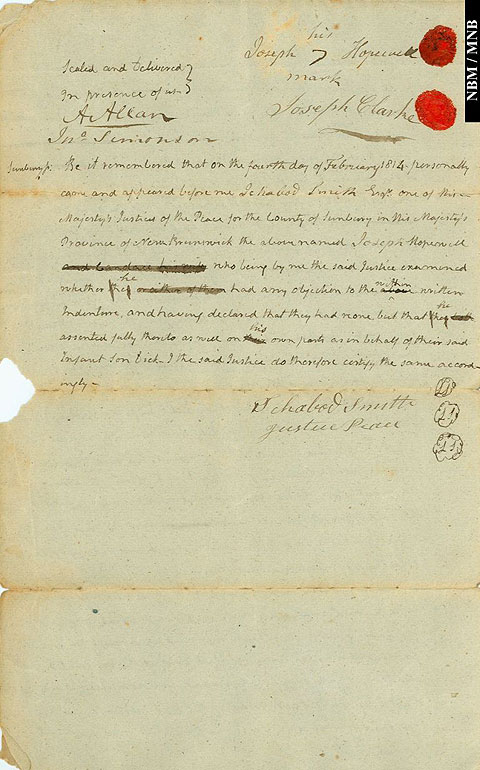 his
Joseph 7 Hopewell
mark
Sealed and Delivered }
In presence of us }
A Allan
Joseph Clarke
Jno. Simonson
Sunbury ss. Be it remembered that on the fourth day of February 1814 personally
came and appeared before me Ichabod Smith Esqr. one of His
Majesty's Justices of the Peace for the County of Sunbury in His Majesty's
Province of New Brunswick the above named Joseph Hopewell
who being by me the said Justice examined
whether he had any objection to the within written
Indenture, and having declared that they had none but that he
assented fully thereto as well on his own parts as in behalf of their said
Infant Son Dick. I the said Justice do therefore certify the same accord-
ingly -
Ichabod Smith
Justice Peace
NBM / MNB